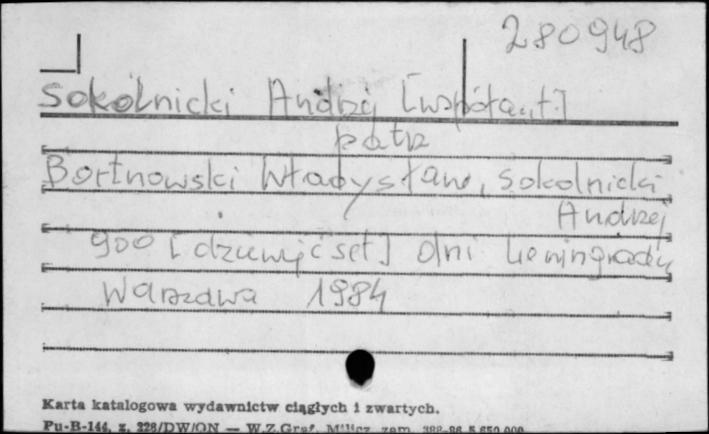 280948
Sokolnicki Andrzej [współaut.]
patrz
Bortnowski Władysław, Sokolnicki
Andrzej
900 [dziewięćset] dni Leningradu
Warszawa 1984
Karta katalogowa wydawnictw ciągłych i zwartych.
Pu-B-144, z. 228/DW/ON — W.Z.Graf. Milicz zam. 5.650.000